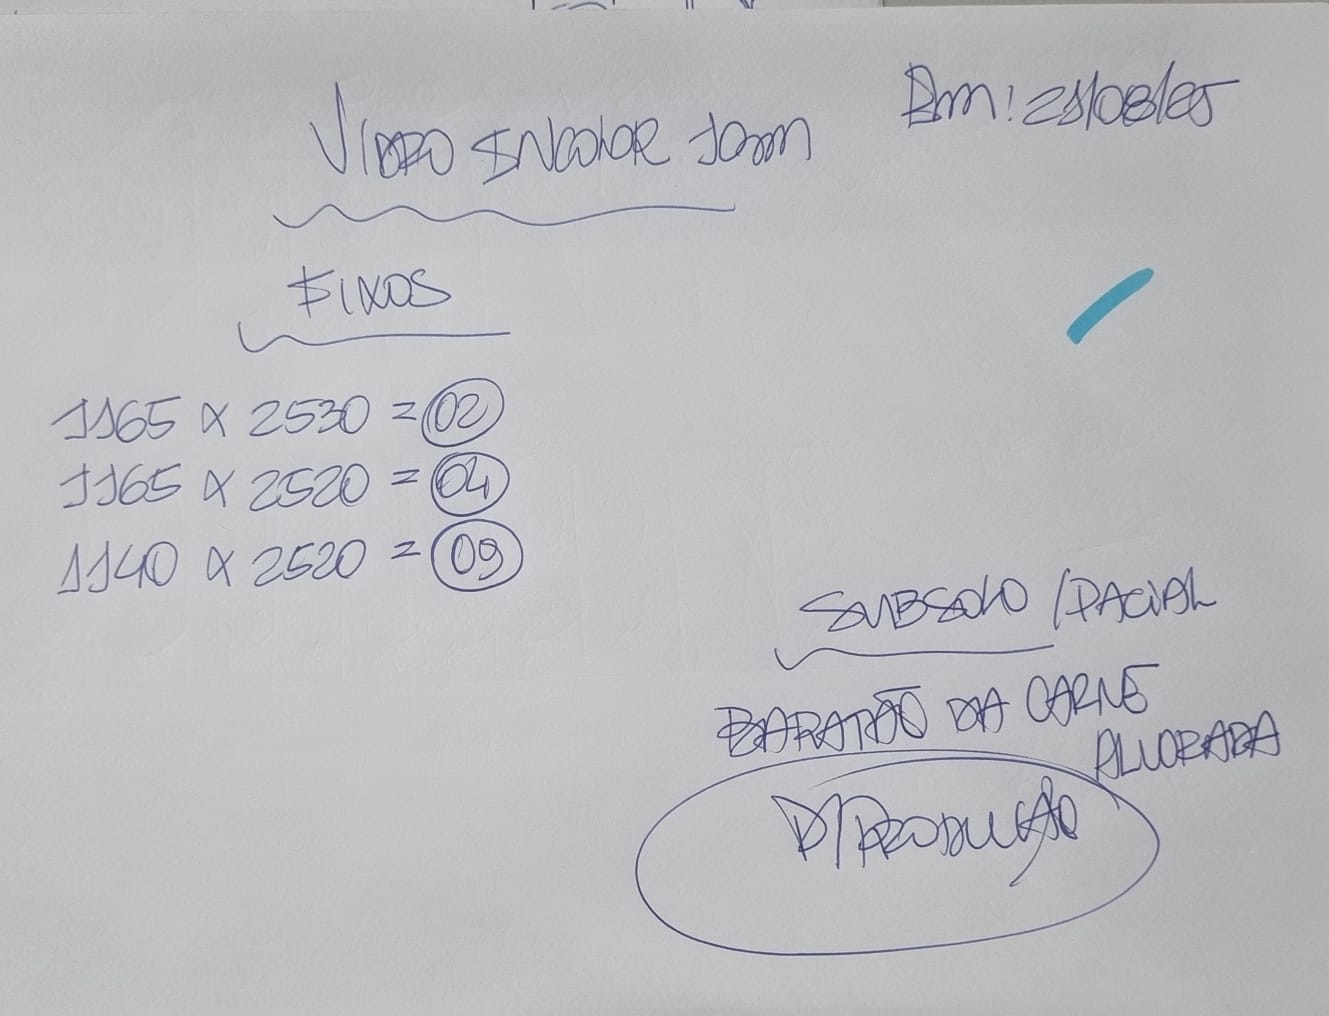 Em: 21/08/25
VIDRO INCOLOR 10mm
FIXOS
1165 x 2530 = 02
1165 x 2520 = 04
1140 x 2520 = 09
SUBSOLO / PACIAL
BARATÃO DA CARNE
ALVORADA
P/ PRODUÇÃO